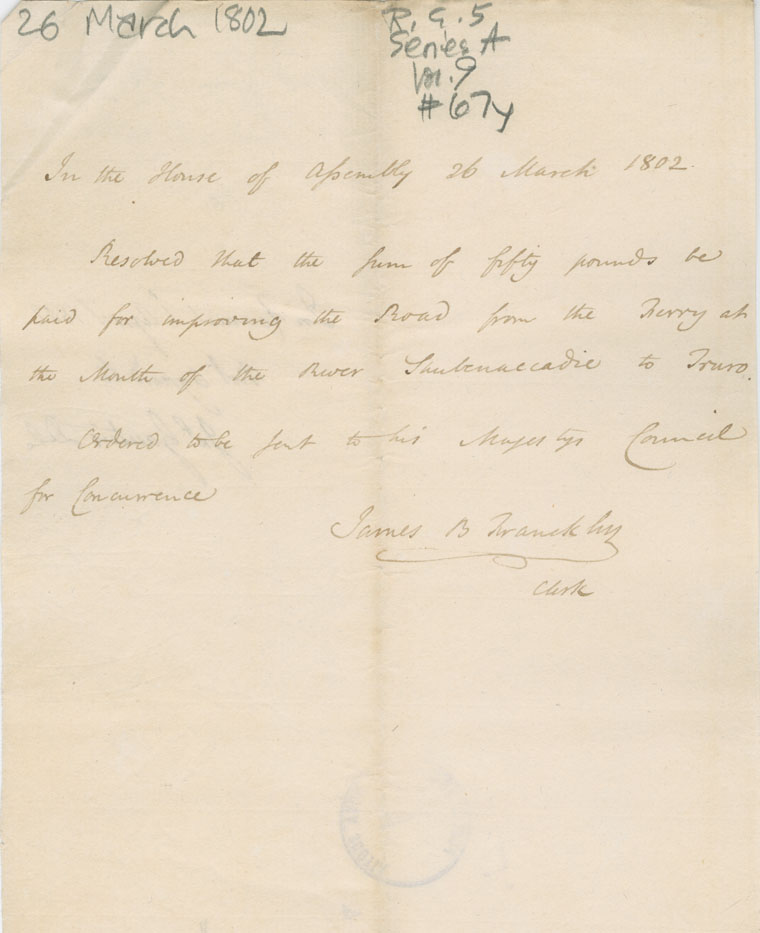 26 March 1802
R. G. 5
Series A
Vol. 9
#67y
In the House of Assembly 26 March 1802.
Resolved that the sum of fifty pounds be
paid for improving the Road from the Ferry at
the Mouth of the River Saubenaccadie to Truro.
Ordered to be sent to his Majestys Council
for Concurrence
James B Franckling
Clerk